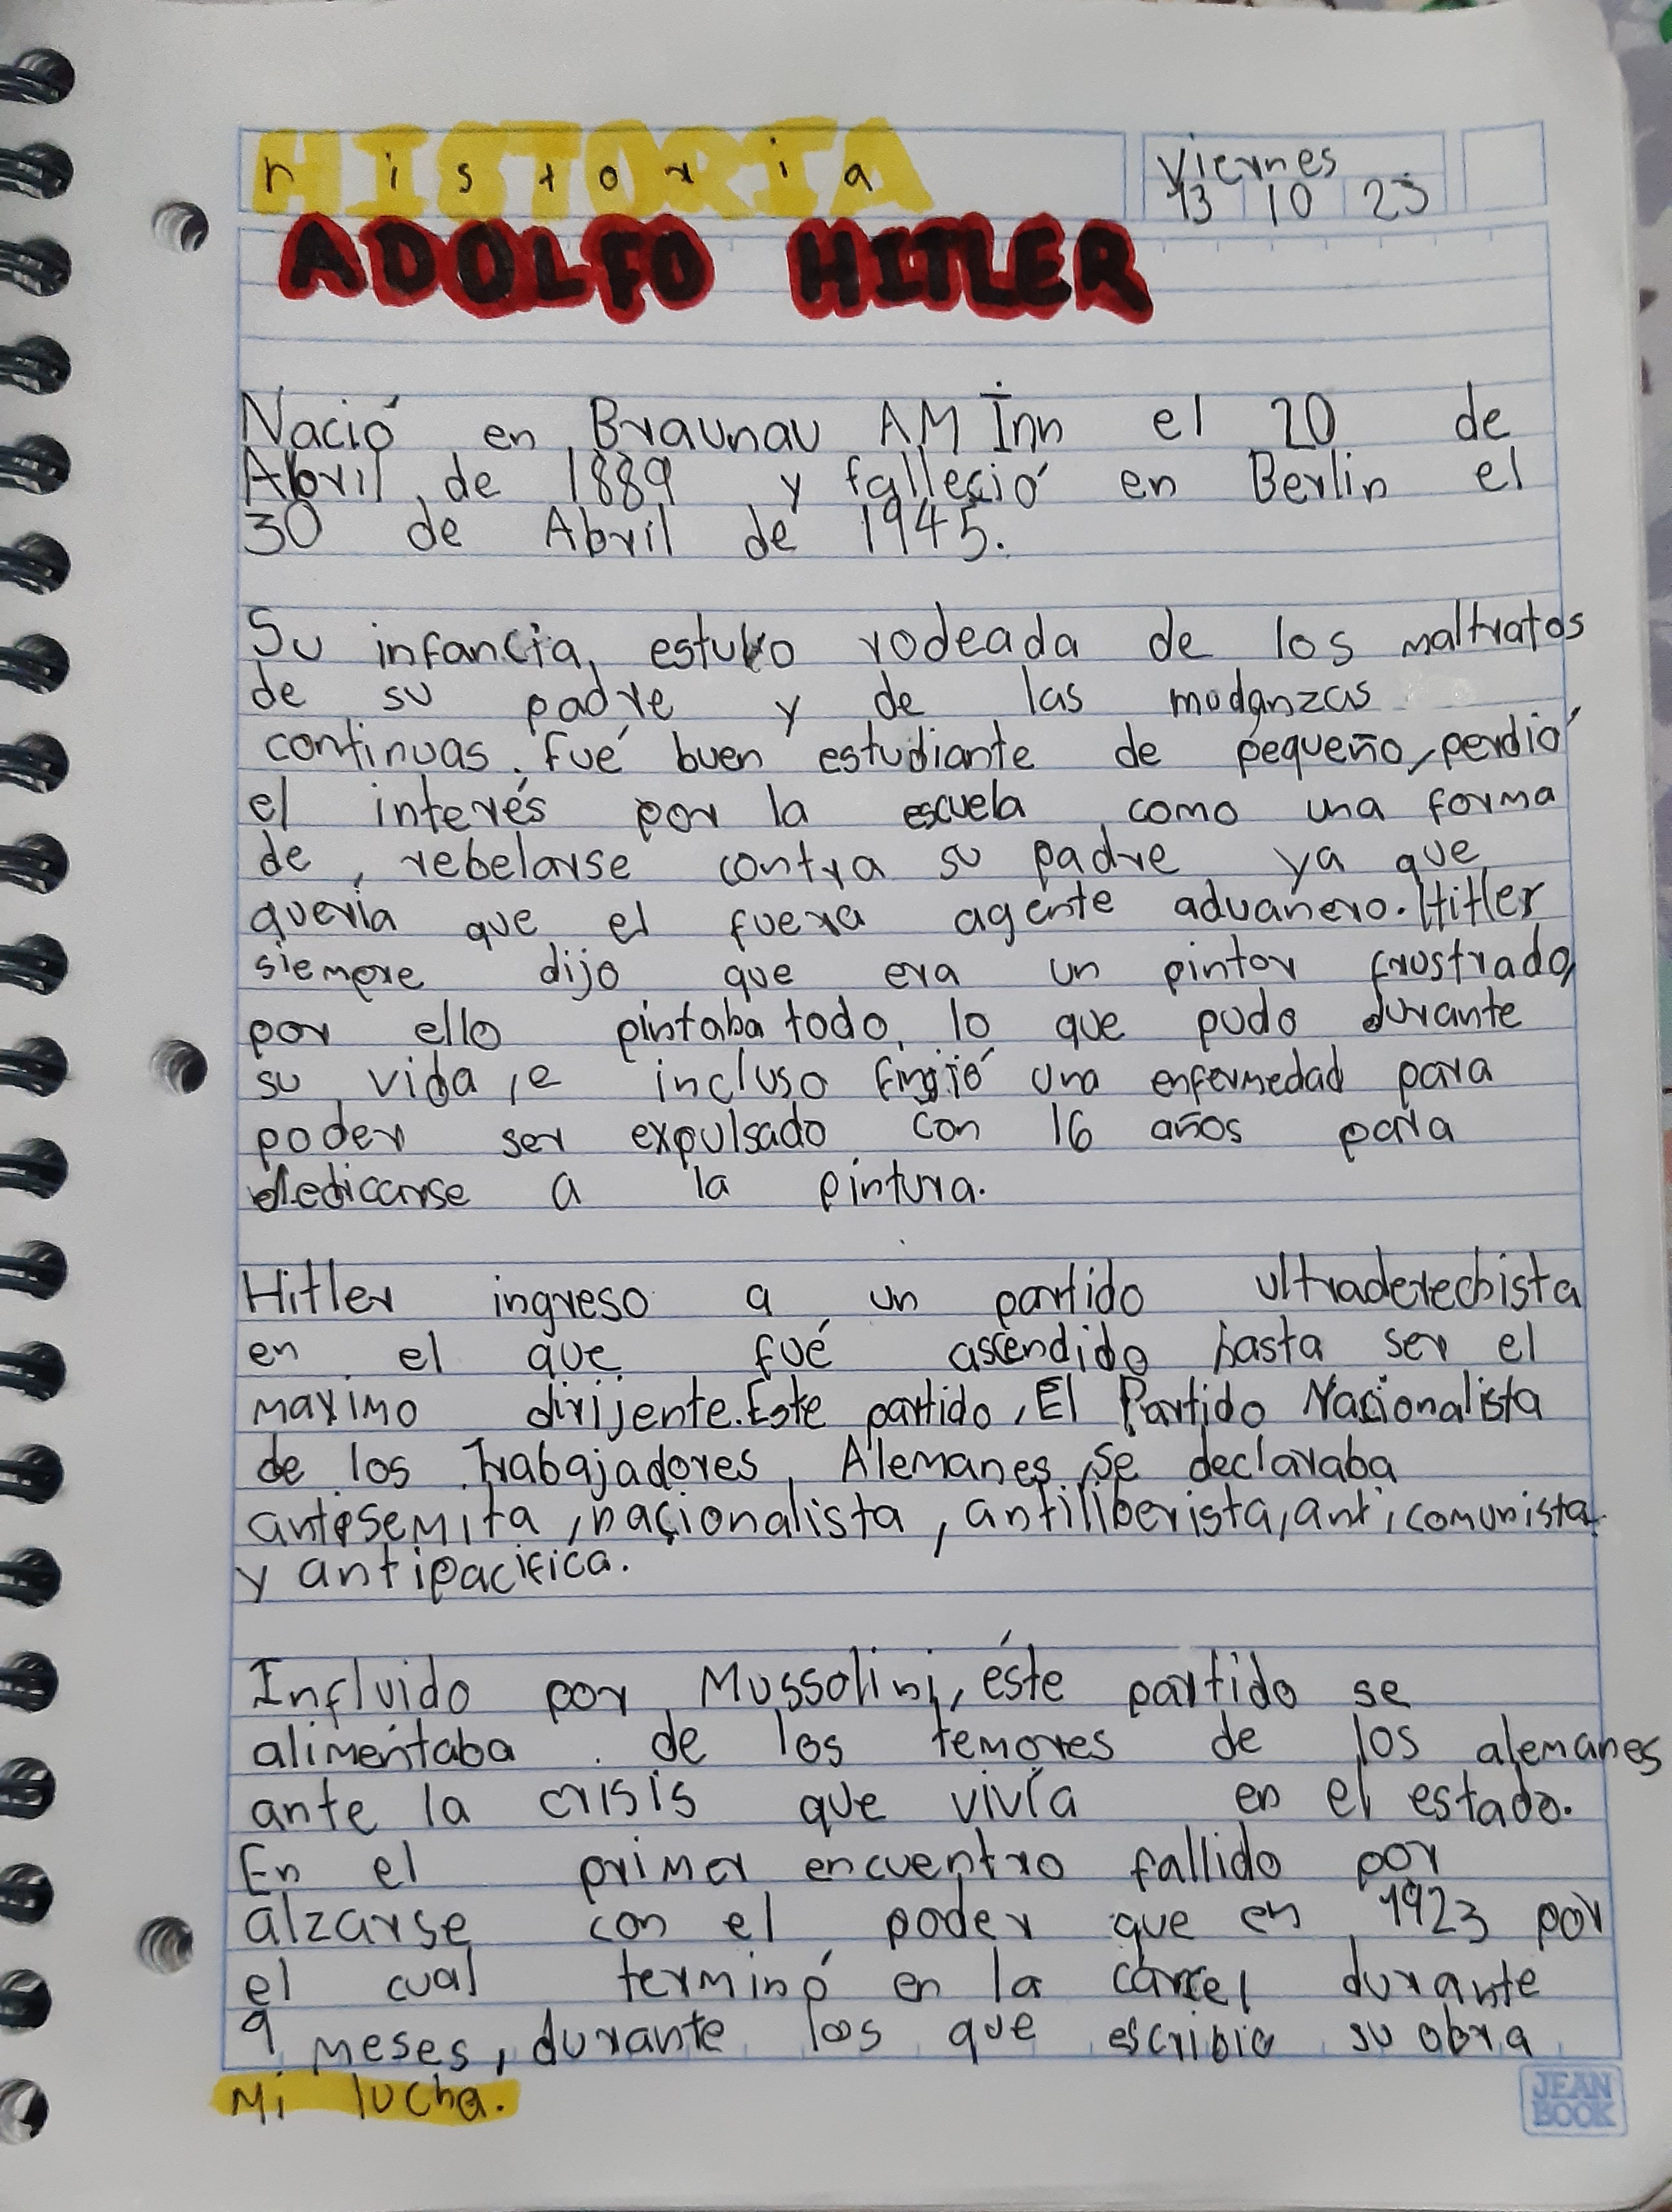 HISTORIA
historia
Viernes
13 10 23
ADOLFO HITLER
Nació en Braunau AM Inn el 20 de
Abril de 1889 y falleció en Berlin el
30 de Abril de 1945.
Su infancia, estuvo rodeada de los maltratos
de su padre y de las mudanzas
continuas. fué buen estudiante de pequeño, perdió
el interés por la escuela como una forma
de, rebelarse contra su padre ya que
queria que el fuera agente aduanero. Hitler
siempre dijo que era un pintor frustrado,
por ello pintaba todo lo que pudo durante
su vida, e incluso fingió una enfermedad para
poder ser expulsado con 16 años para
dedicarse a la pintura.
Hitler ingreso a un partido ultraderechista
en el que fué ascendido hasta ser el
maximo dirijente. Este partido, El Partido Nacionalista
de los Trabajadores Alemanes, se declaraba
antisemita, nacionalista, antiliberista, anticomunista
y antipacifica.
Influido por Mussolini, éste partido se
alimentaba de los temores de los alemanes
ante la crisis que vivía en el estado.
En el primer encuentro fallido por
alzarse con el poder que en 1923 por
el cual terminó en la cárcel durante
9 meses, durante los que escribio su obra
Mi lucha.
JEAN
BOOK